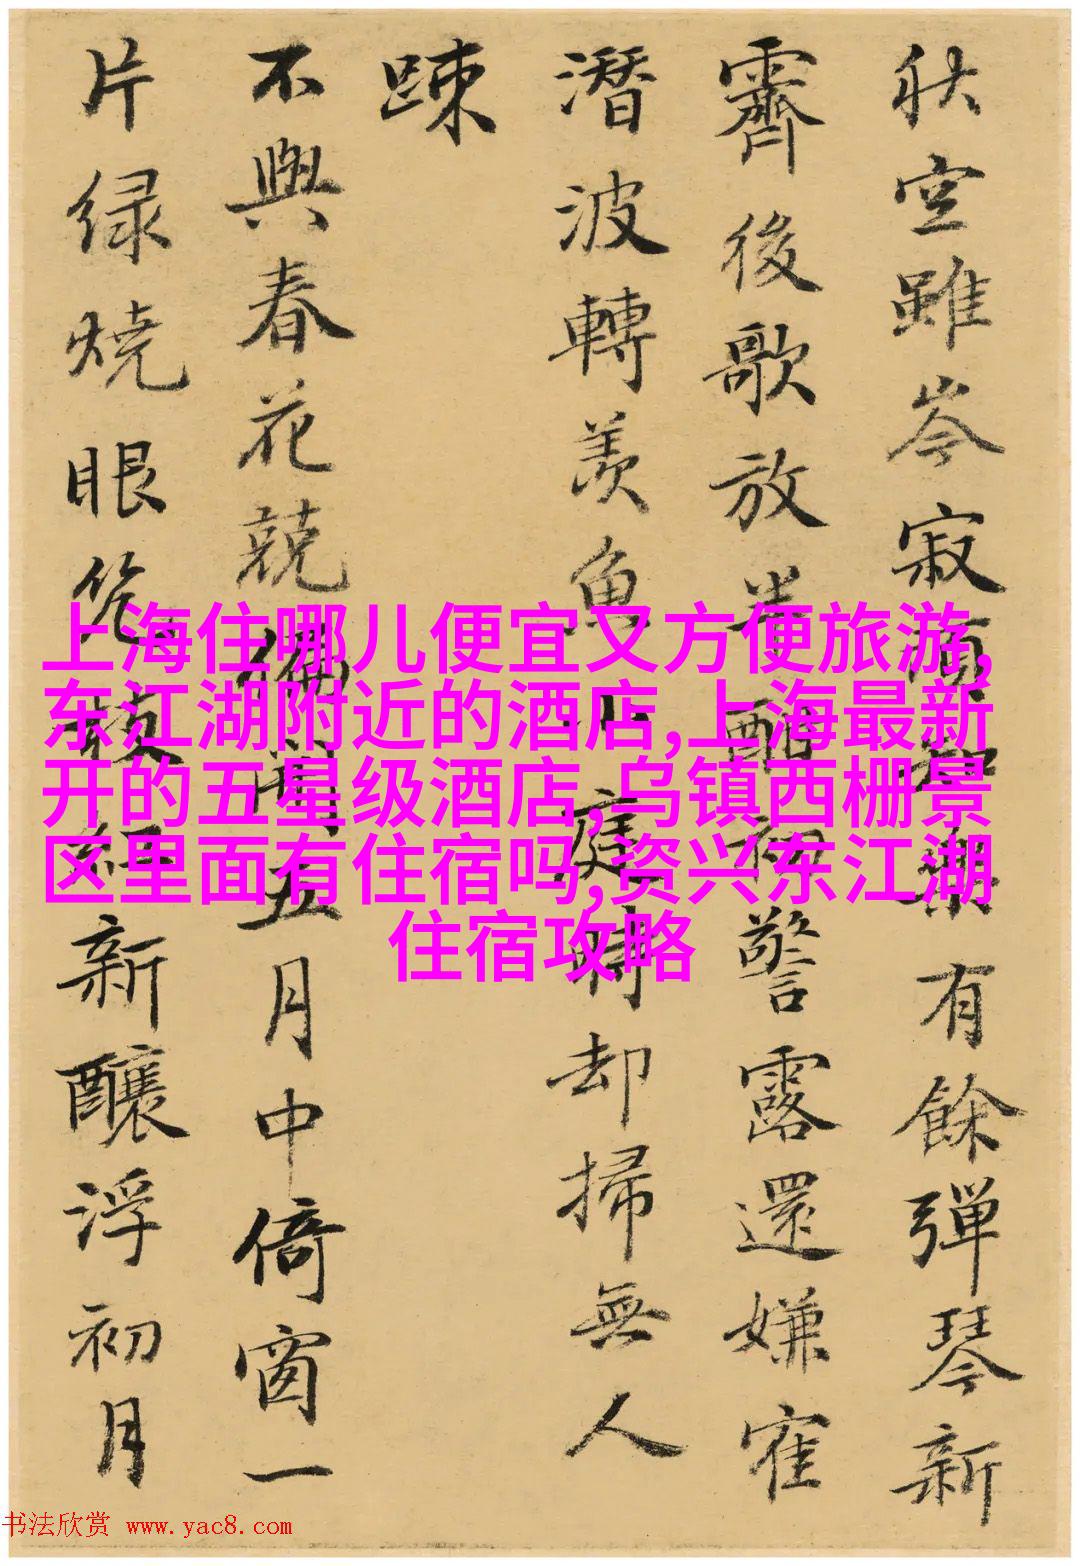 秋空雖岑寂頗樂有餘彈琴新
霽後歌放半酣初警露還嫌寉
潛波轉羨魚小庭時却掃無人
踈
不與春花競偏開五月中倚窗一
片緑燒眼枝紅新釀浮初月
上海住哪儿便宜又方便旅游,
东江湖附近的酒店,上海最新
开的五星级酒店,乌镇西栅景
区里面有住宿吗,资兴东江湖
住宿攻略
书法欣赏 www.yac8.com